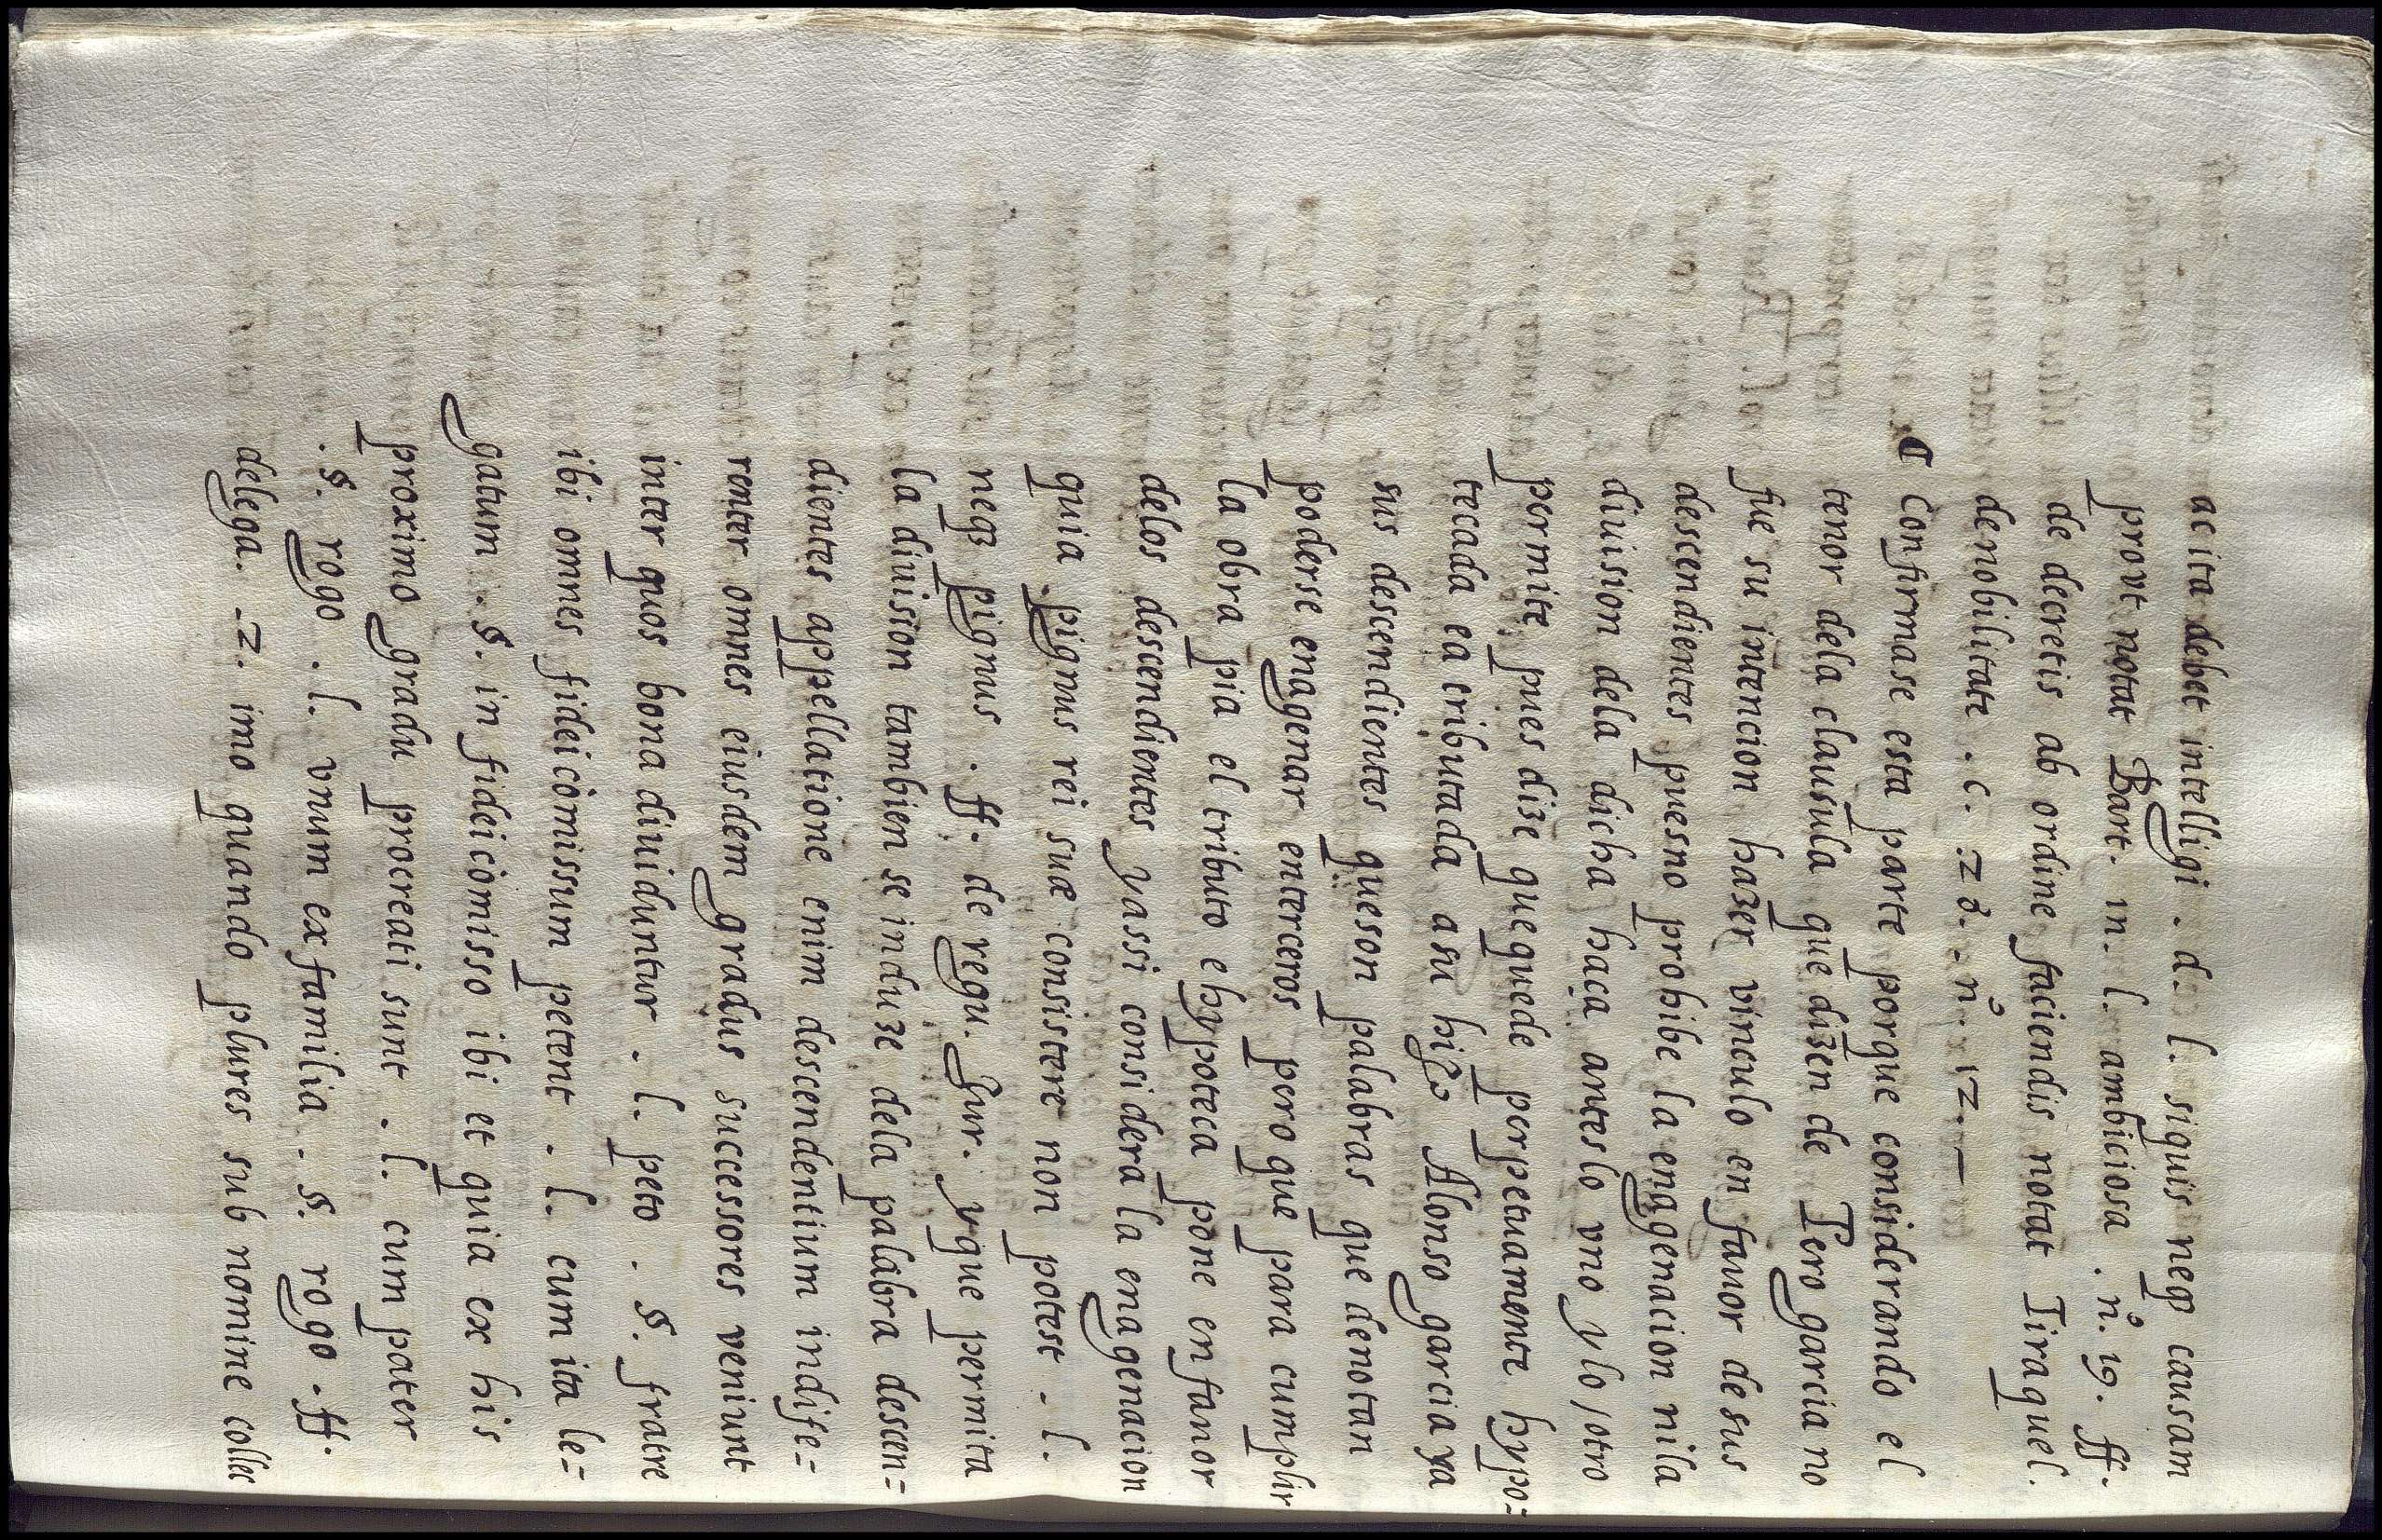 ac ita debet intelligi . d. l. siquis neq3 causam
prout notat Bart. in. l. ambiciosa . nº. 19. ff.
de decretis ab ordine faciendis notat Tiraquel.
de nobilitate . c. 20. nº. 12. —
Confirmase esta parte porque considerando el
tenor dela clausula que dizen de Pero garcia no
fue su intencion hazer vinculo en fauor de sus
descendientes pues no prohibe la enagenacion nila
diuision dela dicha haça antes lo vno y lo / otro
permite pues dize que quede perpetuamente hypo=
tecada ea tributada asu hijo Alonso garcia ya
sus descendientes que son palabras que denotan
poderse enagenar enterceros pero que para cumplir
la obra pia el tributo e hypoteca pone en fauor
delos descendientes yassi considera la enagenacion
quia pignus rei suæ consistere non potest . l.
neq3 pignus . ff. de regu. Jur. y que permita
la diuision tambien se induze dela palabra descen=
dientes appellatione enim descendentium indife=
renter omnes eiusdem gradus successores veniunt
inter quos bona diuiduntur . l. peto . §. fratre
ibi omnes fideicòmissum petent . l. cum ita le=
gatum . §. in fideicòmisso ibi et quia ex his
proximo gradu procreati sunt . l. cum pater
. §. rogo . l. vnum ex familia . §. rogo . ff.
delega. 2. imo quando plures sub nomine colles